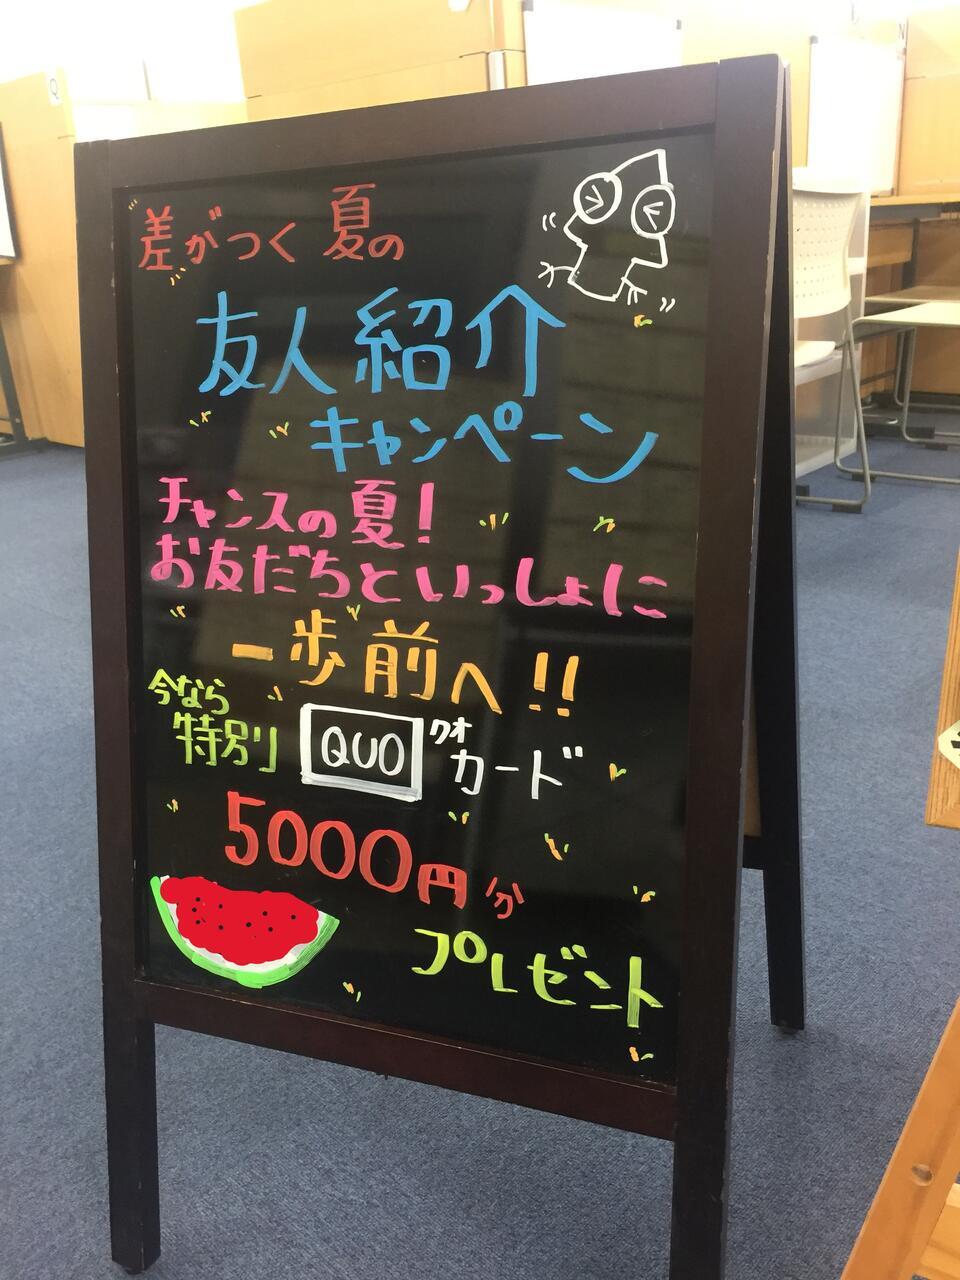 差がつく 夏の
友人紹介
キャンペーン
チャンスの夏!
お友だちといっしょに
一歩前へ!!
今なら
特別 QUO クオ カード
5000円分
プレゼント